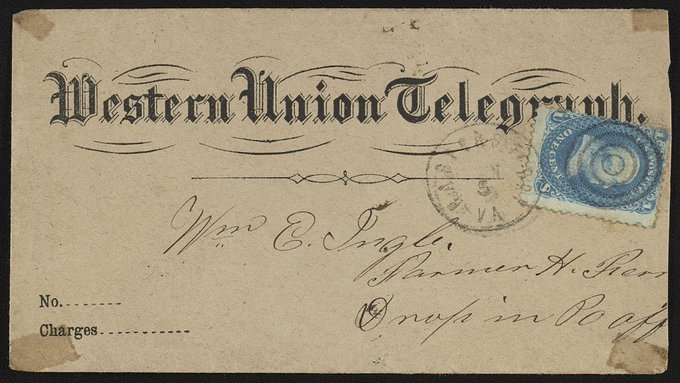 Western Union Telegraph.
ONE CENT
5
VA
Wm E. Ingle.
Farmer H.
Drop in Po off
No.........
Charges............